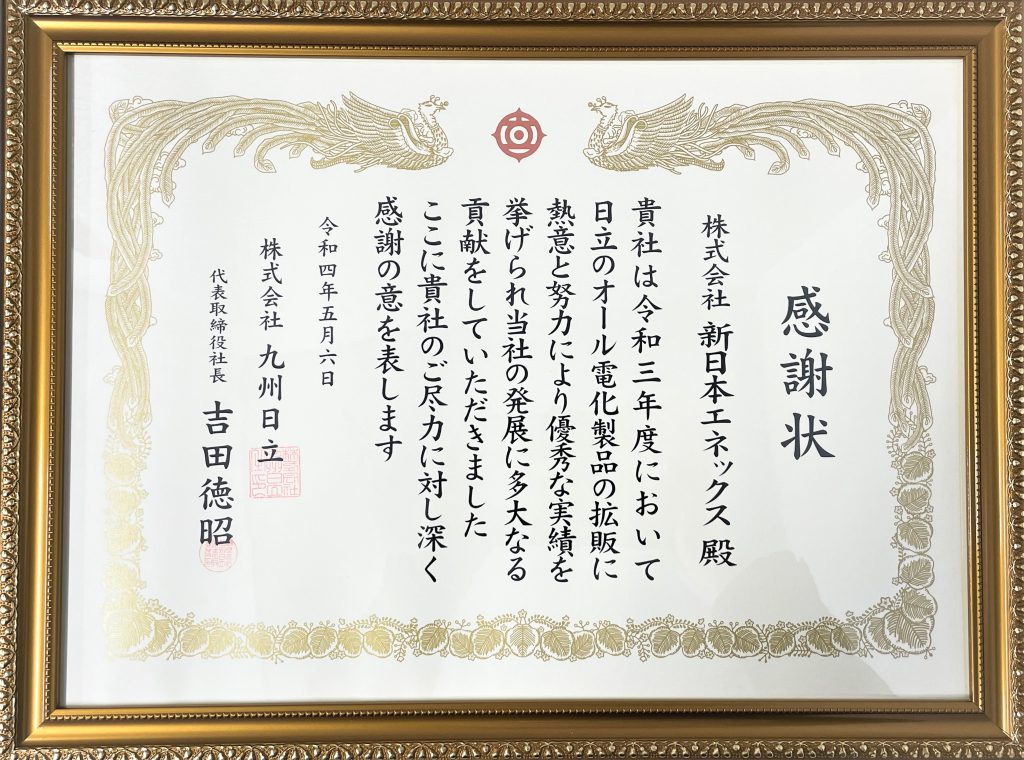 感謝状
株式会社 新日本エネックス 殿
貴社は令和三年度において
日立のオール電化製品の拡販に
熱意と努力により優秀な実績を
挙げられ当社の発展に多大なる
貢献をしていただきました
ここに貴社のご尽力に対し深く
感謝の意を表します
令和四年五月六日
株式会社 九州日立
代表取締役社長 吉田徳昭